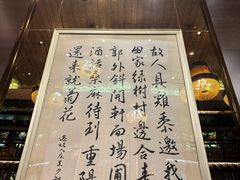 故人具雞黍邀我
田家綠樹村邊合青
郭外斜開軒面場圃
酒話桑麻待到重陽
還來就菊花